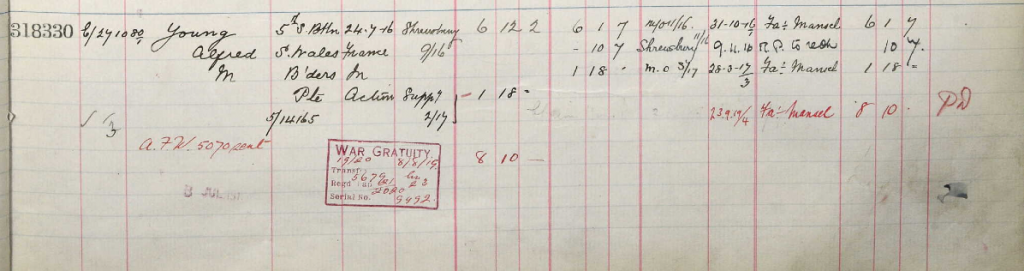 318330 E/271080 Young 5th S. Bttn 24-7-16 Shrewsbury 6 12 2 6 1 7 11/16 31-10-16 Fa: Mansel 6 1 7
Alfred S. Wales France 9/16 - 10 7 Shrewsbury 11/16 9.11.16 10 7.
In B'ders In 1 18 - m.o 3/17 28-3-17 Fa: Mansel 1 18 -
Pte Action Suppy 2/17 - 1 18 -
5/14165 23.9.19 Fa: Mansel 8 10 - PD
A.F.W. 5070 sent
8 10 -
WAR GRATUITY.
19/20 8/8/19.
Transf
5679
Regd
Serial No. 9992